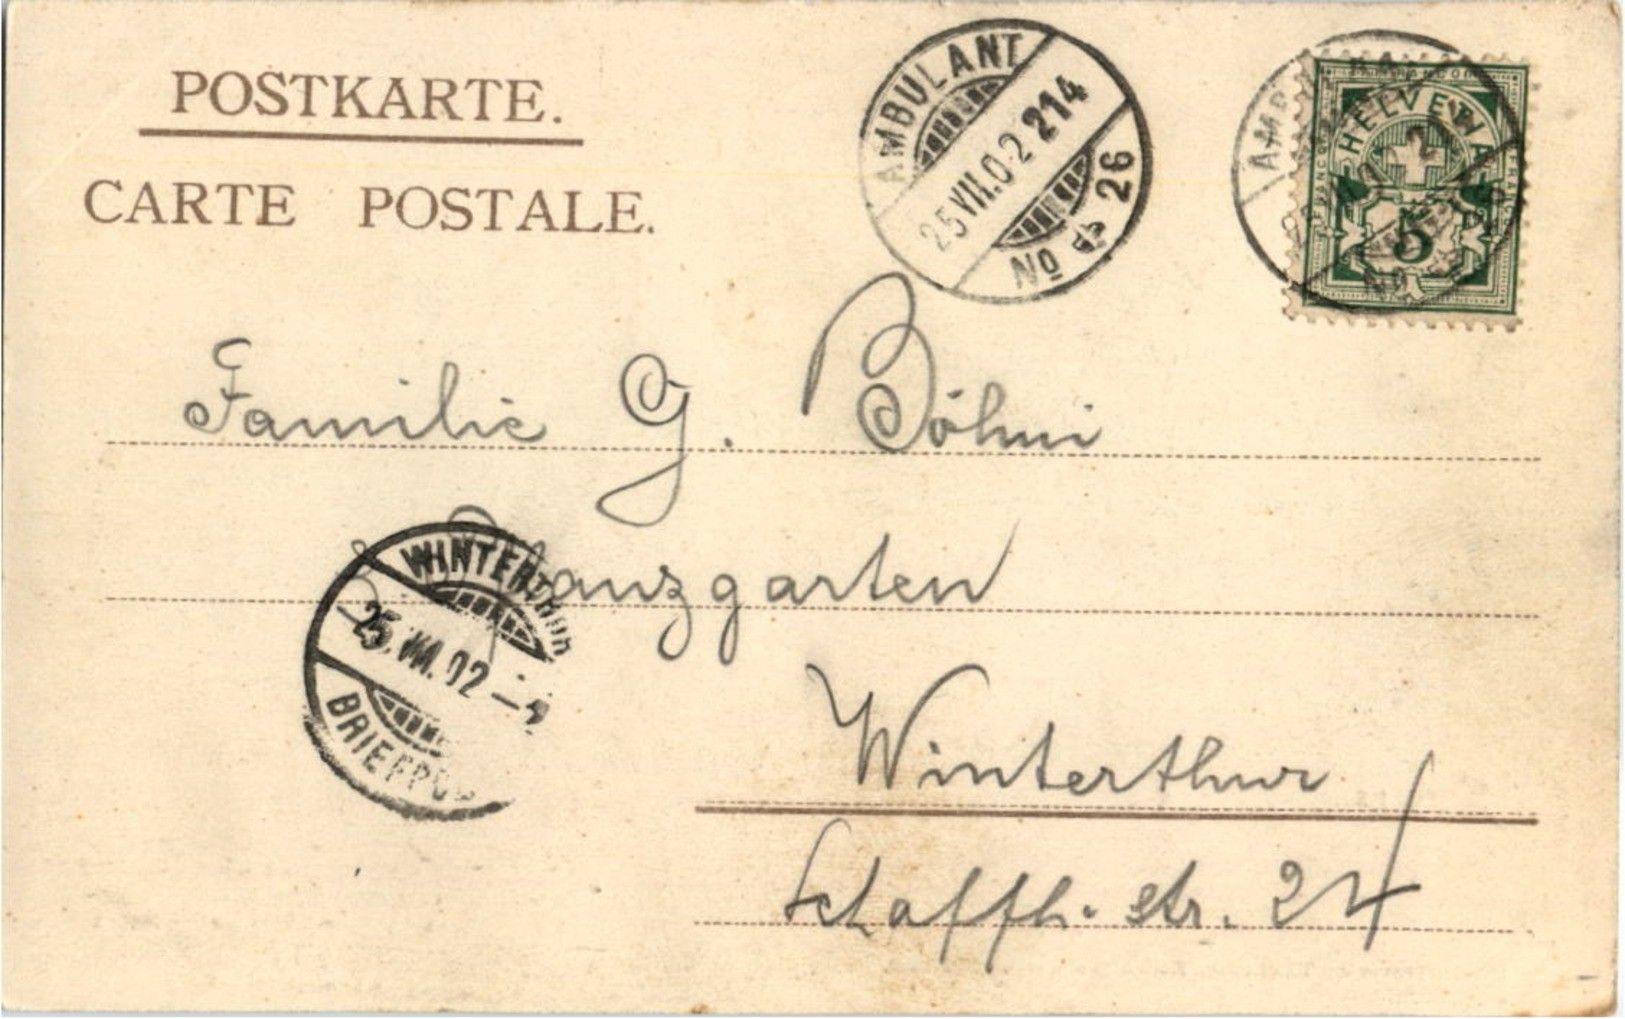 POSTKARTE.
CARTE POSTALE.
AMBULANT
25 VII.02 214
No 26
HELVETIA
5
Familie G. Böhni
Pflanzgarten
WINTERTHUR
25. VII. 02
Winterthur
Schaffh. str. 24